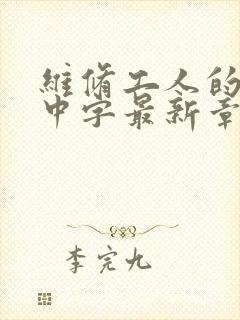 維脩工人的
中字最新章
李完九